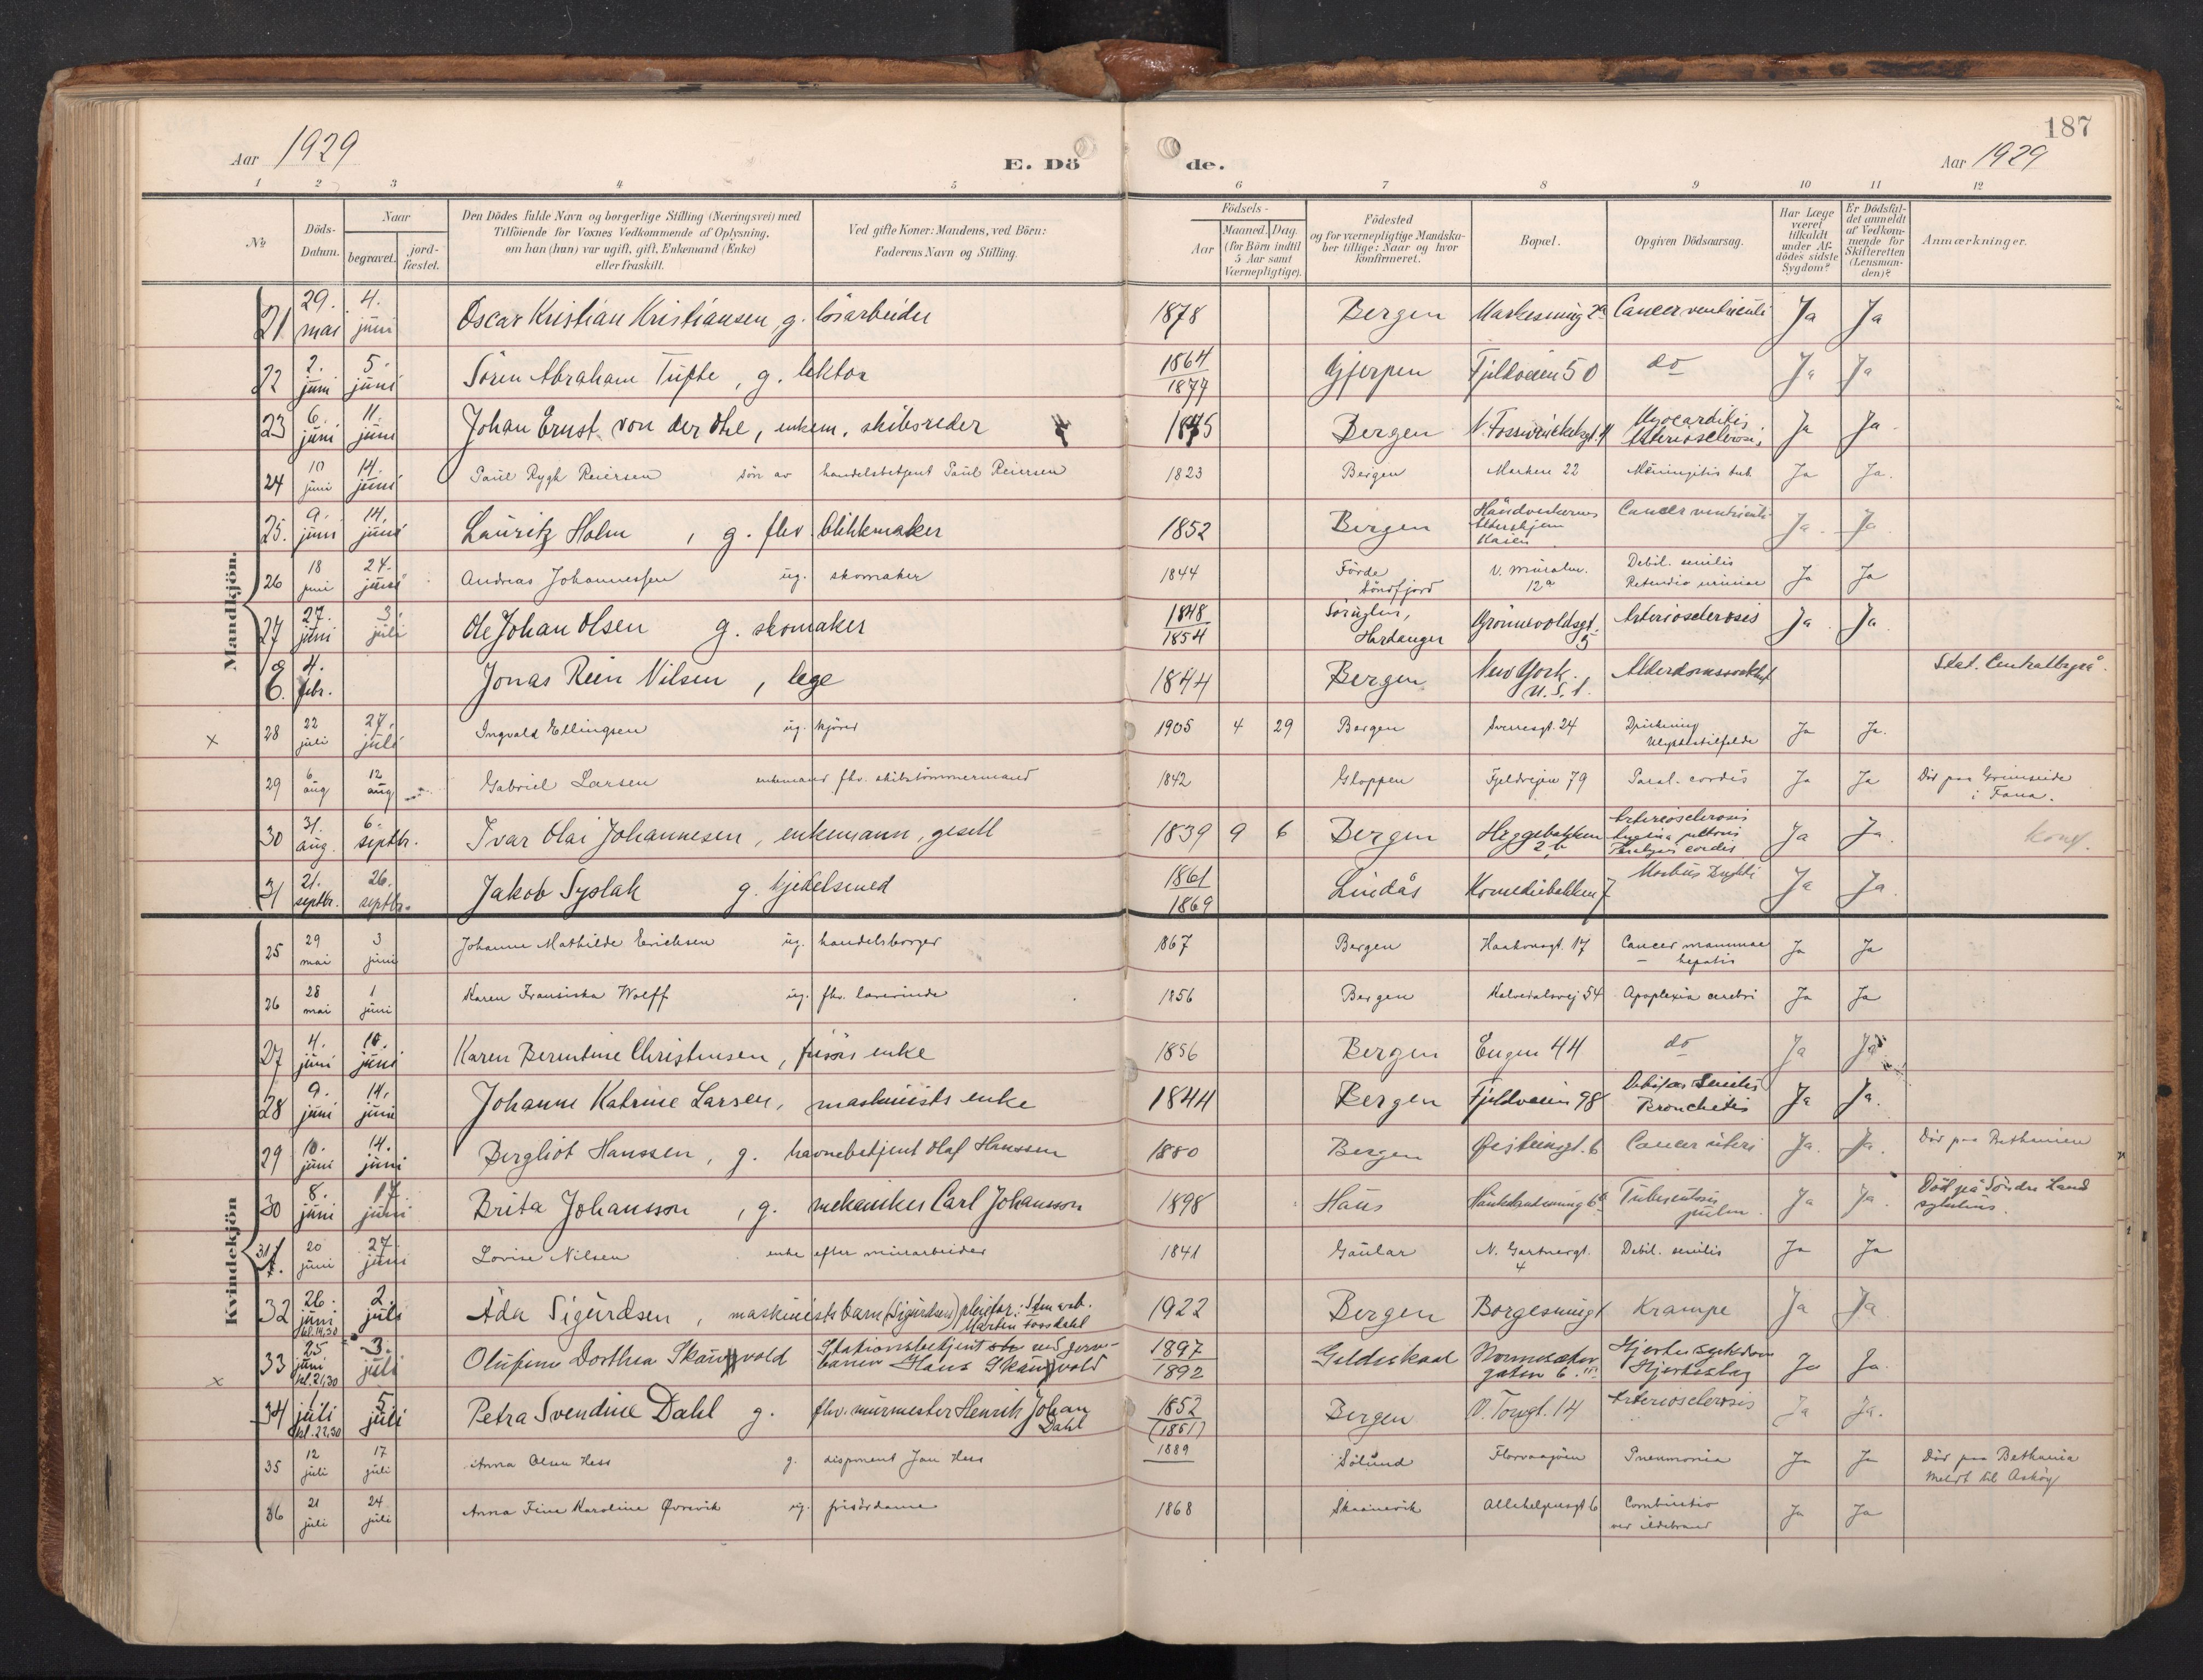 187
Aar 1929
E. Dö
de.
Aar 1929
1 2 3 4 5 6 7 8 9 10 11 12
№
Döds-
Datum.
Naar
begravet.
jord-
fæstet.
Den Dödes fulde Navn og borgerlige Stilling (Næringsvei) med
Tilföiende for Voxnes Vedkommende af Oplysning,
om han (hun) var ugift, gift, Enkemand (Enke)
eller fraskilt.
Ved gifte Koner: Mandens, ved Börn:
Faderens Navn og Stilling.
Födsels-
Aar
Maaned. Dag.
(for Börn indtil
5 Aar samt
Værnepligtige).
Födested
og for værnepligtige Mandska-
ber tillige: Naar og hvor
konfirmeret.
Bopæl.
Opgiven Dödsaarsag.
Har Læge
været
tilkaldt
under Af-
dödes sidste
Sygdom?
Er Dödsfal-
det anmeldt
af Vedkom-
mende for
Skifteretten
(Lensman-
den)?
Anmærkninger.
Mandkjön.
21 29. mai 4. juni Oscar Kristian Kristiansen, g. lösarbeider 1878 Bergen 2a Cancer ventriculi Ja Ja
22 2. juni 5. juni Sören Abraham Tufte, g. lektor 1864 1877 Gjerpen Fjeldveien 50 do Ja Ja
23 6. juni 11. juni Johan Ernst von der Ohe, enkem. skibsreder 1875 Bergen Myocarditis Arteriosclerosis Ja Ja
24 10 juni 14. juni Paul Rygh Reiersen sön av handelsbetjent Paul Reiersen 1823 Bergen Marken 22 Meningitis tub. Ja Ja.
25. 9. juni 14. juni Lauritz Holm, g. fhv. blikkmaker 1852 Bergen Håndverkernes Altershjem Kaien Cancer ventriculi Ja. Ja
26 18 juni 24. juni Andreas Johannessen ug. skomaker 1844 Förde Söndfjord V. Muralm. 12a Debil. senilis Retentio urinae Ja Ja
27 27. juni 3. juli Ole Johan Olsen g. skomaker 1848 1854 Hardanger Grönnevoldsgt. 5 Arteriosclerosis Ja Ja
8 E. 4. febr. Jonas Rein Nilsen, lege 1844 Bergen New York. U.S.A. Alderdomssvakhet Stat. Centralbyrå.
× 28 22 juli 27. juli Ingvald Ellingsen ug. kjörer 1905 4 29 Bergen Sverresgt. 24 Drukning Ulykkestilfelde Ja Ja.
29 6 aug 12 aug Gabriel Larsen enkemand fhv. skibstömmermand 1842 Gloppen Fjeldveien 79 Paral. cordis Ja Ja Död paa Grimseide i Fana.
30 31. aug. 6. septbr. Ivar Olai Johannesen, enkemann, gesell 1839 9 6 Bergen Heggebakken 2b Arteriosclerosis Angina pectoris Paralysis cordis Ja Ja
31 21. septbr. 26. septbr. Jakob Syslak g. kjedelsmed 1861 1869 Lindås Komediebakken 7 Morbus Ja Ja.
Kvindekjön
25 29 mai 3 juni Johanne Mathilde Erichsen ug. handelsborger 867 Bergen Haakonsgt. 17 Cancer mammae – hepatis Ja Ja
26 28 mai 1 juni Karen Fransiska Wolff ug. fhv. lærerinde 1856 Bergen Kalvedalsvej 54 Apoplexia cerebri Ja Ja
27 4. juni 10. juni Karen Berentine Christensen, enke 1856 Bergen Engen 44 do Ja Ja
28 9. juni 14. juni Johanne Katrine Larsen, maskinists enke 1844 Bergen Fjeldveien 98 Debilitas Senilis Bronchitis Ja Ja.
29 10. juni 14. juni Bergliot Hanssen, g. havnebetjent Olaf Hanssen 1880 Bergen Øisteinsgt. 6 Cancer uteri Ja. Ja. Död paa Bethanien
30 8. juni 17. juni Brita Johansson, g. mekaniker Carl Johansson 1898 Haus 6a Tuberculosis pulm. Ja Ja. Död på Söndre Land
31 20 juni 27 juni Lovise Nilsen enke efter minearbeider 1841 Gaular N. Gartnergt. 4 Debil. senilis Ja Ja
32 26. juni kl. 14,30 2. juli Ada Sigurdsen, maskinists barn (Sigurdsen) pleiefar: Martin Fossdahl 1922 Bergen Borgesmug 1 Krampe Ja Ja
× 33 25 juni kl. 21,30 3. juli Olufine Dorthea Skaugvold Stationsbetjent ved jernbanen Hans Skaugvold 1897 1892 Gildeskaal gaten 6 Hjertesygdom Hjerteslag Ja Ja.
34 1 juli kl. 22,30 5 juli Petra Svendine Dahl g. fhv. murmester Henrik Johan Dahl 1852 (1851) Bergen V. Torvgt. 14 Arteriosclerosis Ja Ja.
35 12 juli 17 juli Anna Olsen Hess g. disponent Jan Hess 1889 Solund Florvaagöen Pneumonia Ja Ja Död paa Bethania meldt til Asköy
36 21 juli 24 juli Anna Fine Karoline Øvrevik ug. frisördame 1868 Skaanevik Allehelgensgt 6 Combustio ved ildebrand Ja Ja